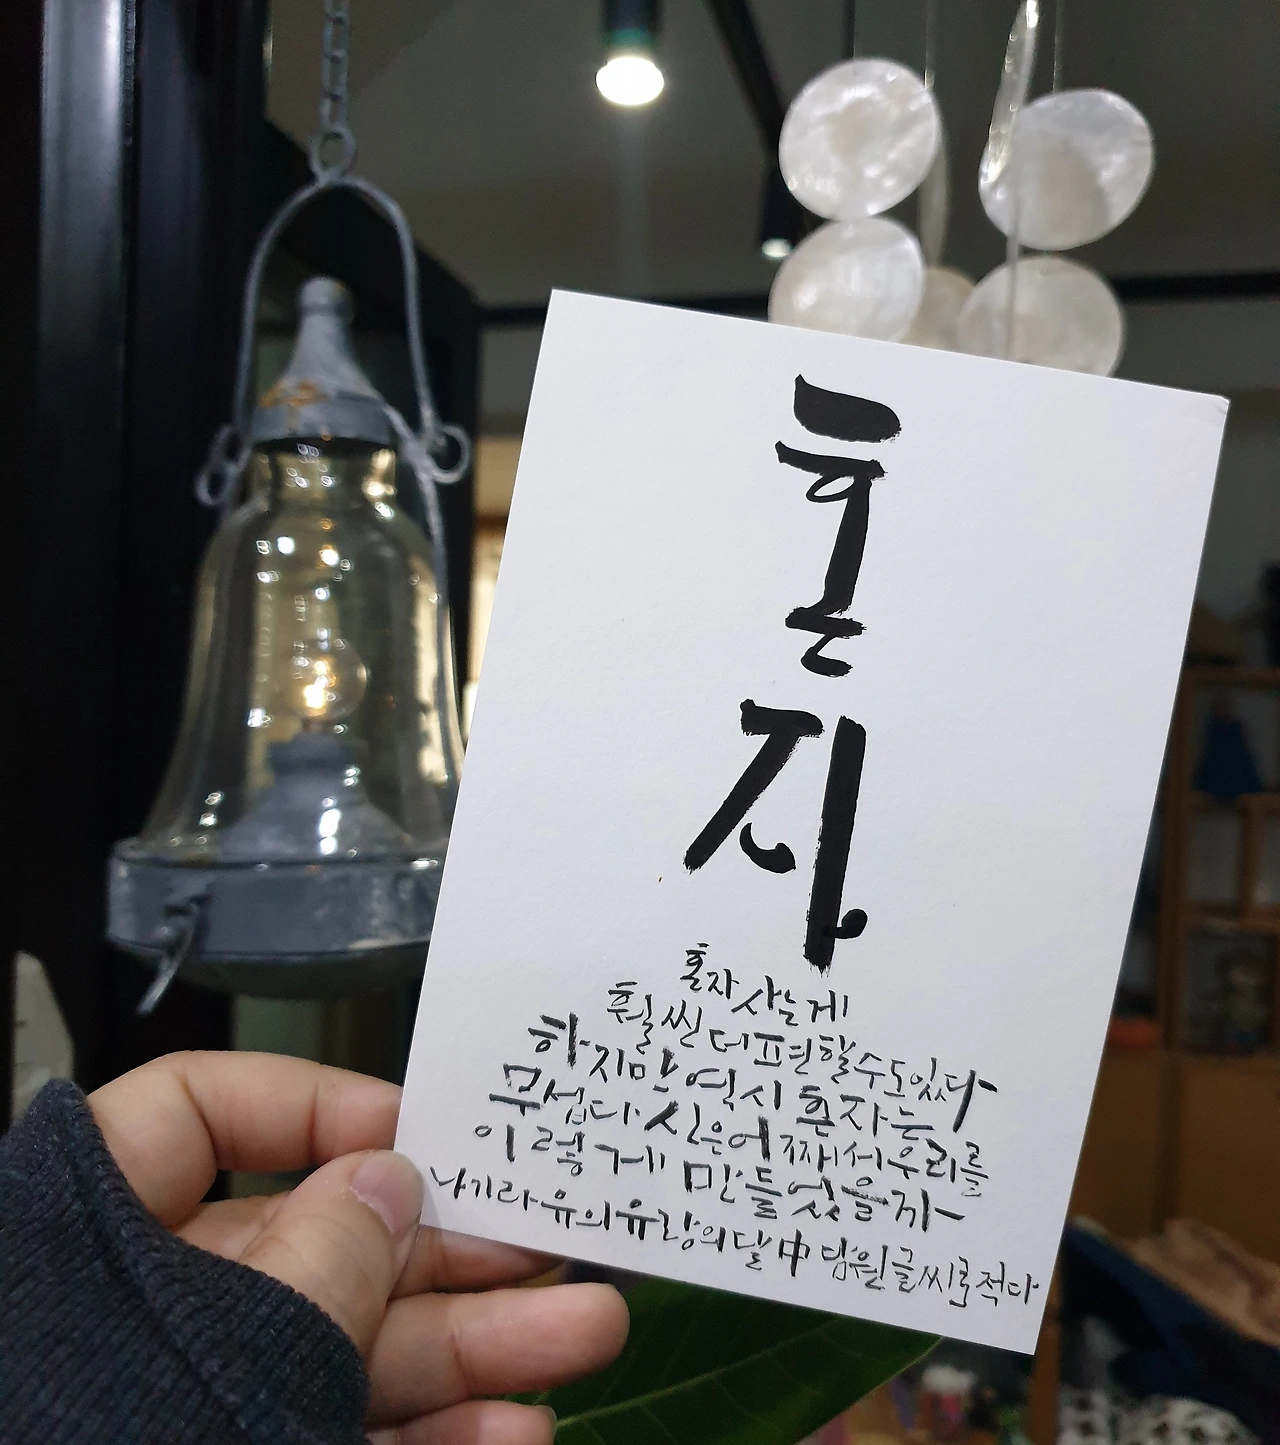 혼
자
혼자 사는게
훨씬 더 편할 수도 있다
하지만 역시 혼자는
무섭다 신은 어째서 우리를
이렇게 만들었을까
나가라 유의 유랑의 달 中 담원글씨로 적다